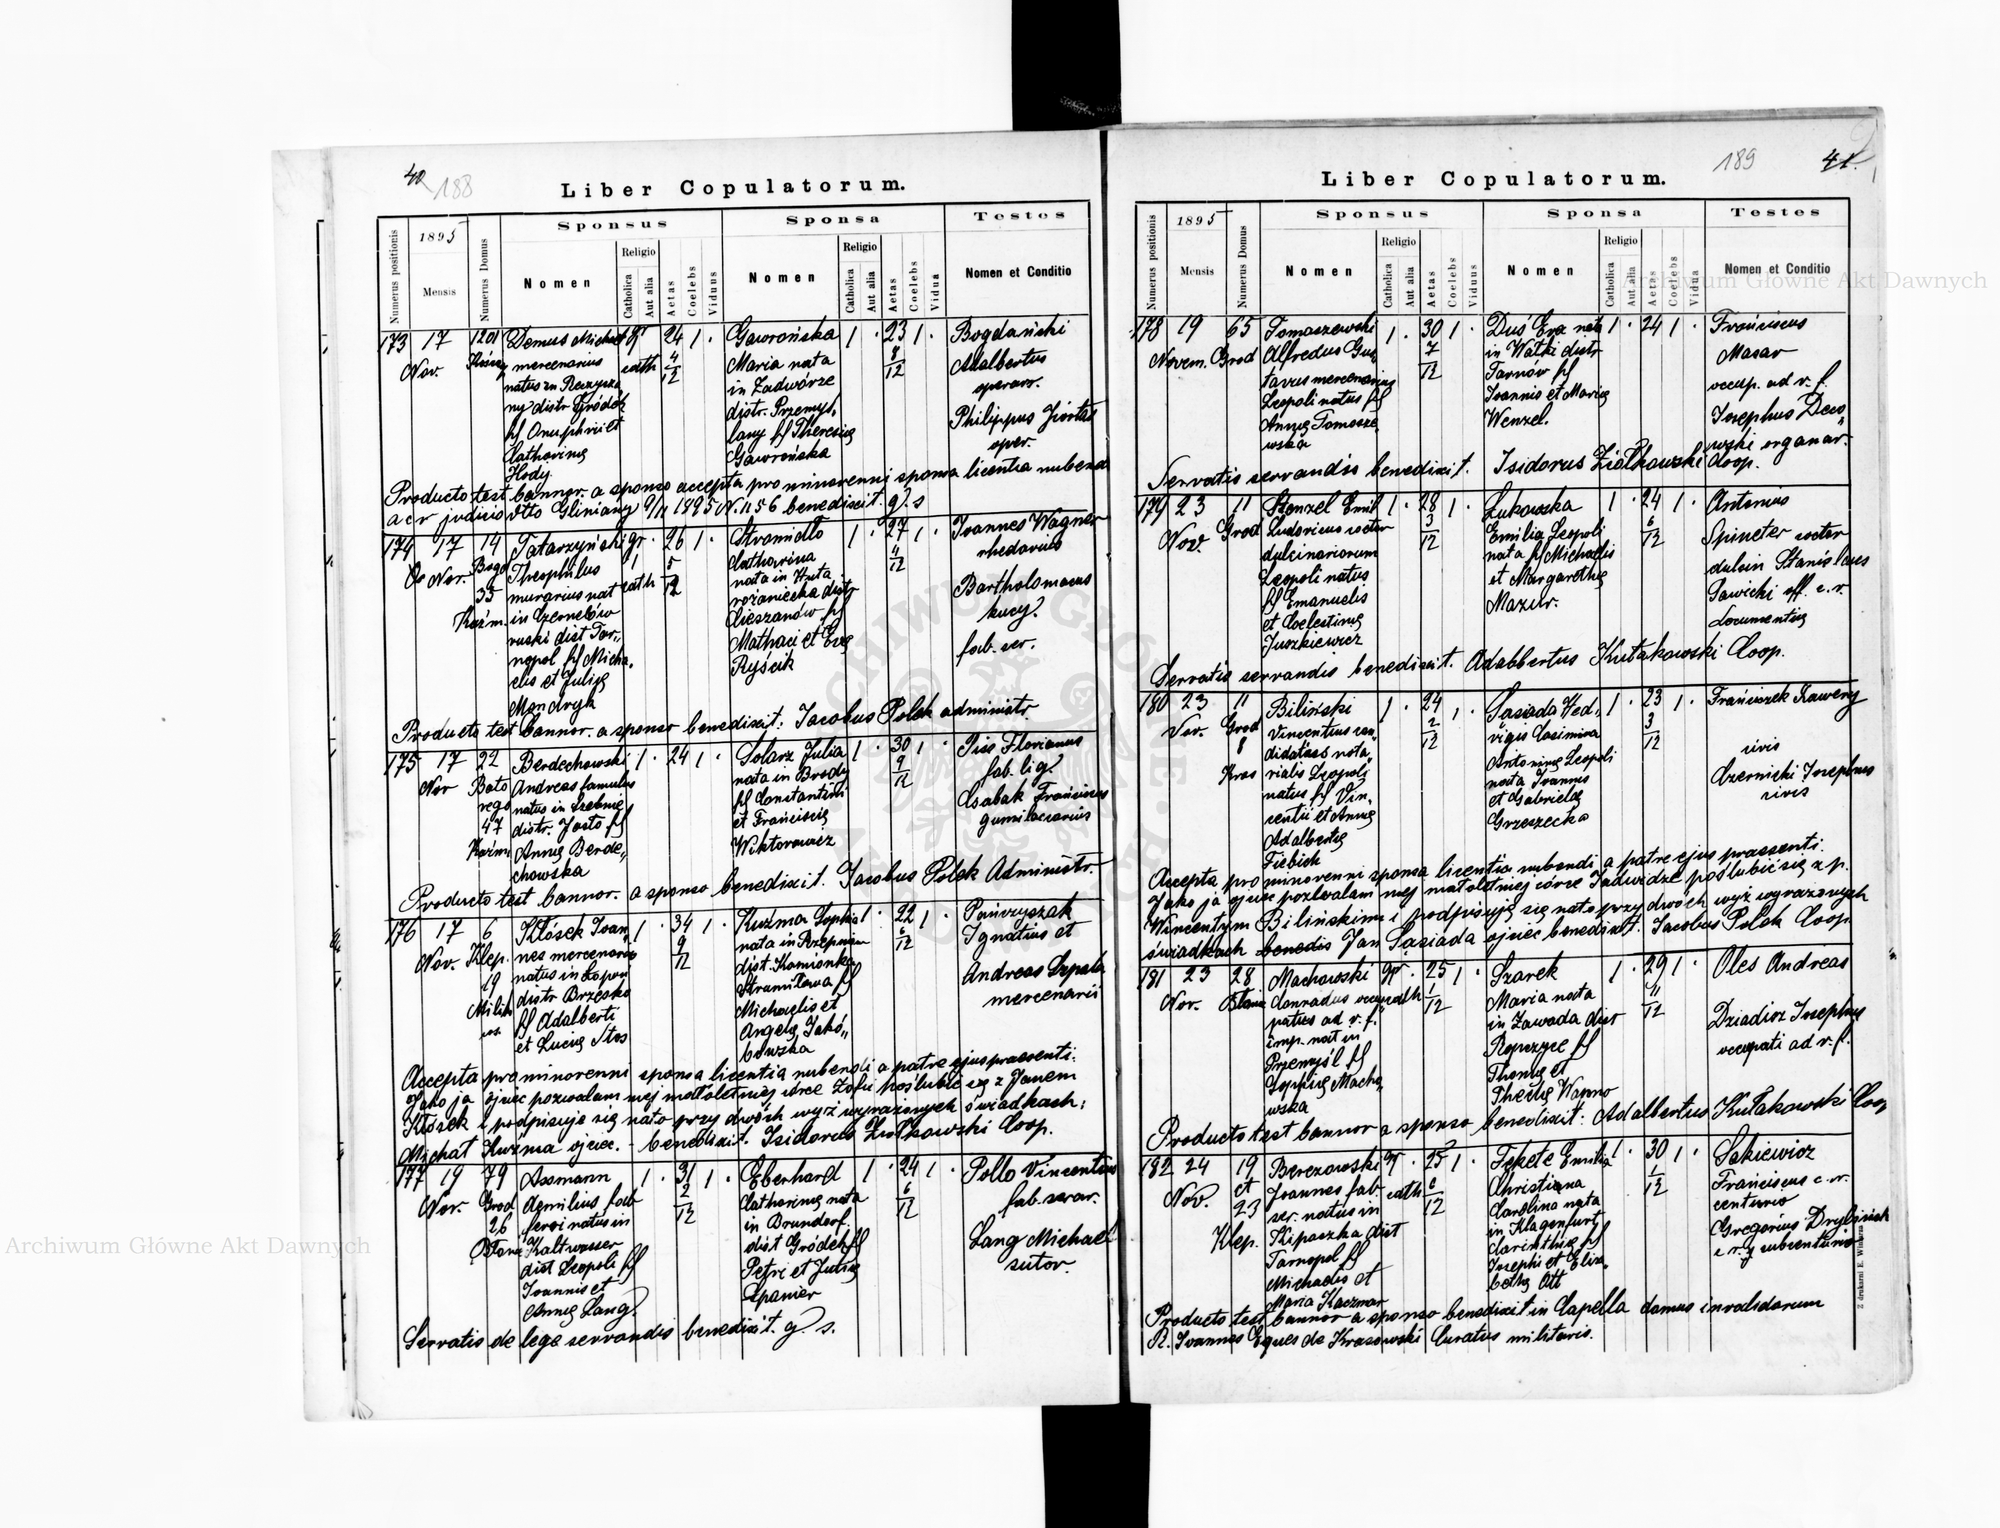 40 188
Liber Copulatorum.
Numerus positionis
1895
Mensis
Numerus Domus
Sponsus
Nomen
Religio
Catholica
Aut alia
Aetas
Coelebs
Viduus
Sponsa
Nomen
Religio
Catholica
Aut alia
Aetas
Coelebs
Vidua
Testes
Nomen et Conditio
173 17 1201 Demus Michael gr 24 1 . Gaworońska 1 . 23 1 . Bogdański
Nov. mercenarius cath 4/12 Maria nata 8/12 Adalbertus
natus in in Zadwórze operarr.
distr Gródek distr. Przemyś,
ff Onuphrii et lany ff Theresię Philippus
Catharinę Gaworońska oper.
Hody
Producto test bannor. a sponso accepta pro minorenni sponsa licentia nubendi
a c r judicio dtto Gliniany 9/11 1895 N. 1156 benedixit. g. s
174 17 14 Tatarzyński gr . 26 1 . Stromidło 1 . 27 1 . Joannes Wagner
Nov. Bogd Theophilus 5/12 Catharina 4/12 rhedarius
35 murarius nat cath nata in Huta
Kaźm. in Czernelów różaniecka distr Bartholomaeus
ruski dist Tar,, Cieszanów ff kucy?
nopol ff Micha, Mathaei et Evę fab. ser.
elis et Julię Ryścik
Mandryk
Producto test bannor. a sponso benedixit: Jacobus Polak administr.
175 17 22 Berdechowski 1 . 24 1 . Solarz Julia 1 . 30 1 . Piss Florianus
Nov Bato Andreas famulus nata in Brody 9/12 fab. lig.
rego natus in Szebnie ff Constantini Csabak Franciscus
47 distr. Jasło ff et Franciscię gumilaciarius
Kaźm. Annię Berde,, Wiktorowicz
chowska
Producto test bannor. a sponso benedixit. Jacobus Polak Administr.
176 17 6 Kłósek Joan, 1 . 34 1 . Kuźma Sophia 1 . 22 1 . Pańczyszak
Nov. Klep. nes mercenarius 9/12 nata in Rzepniów 6/12 Ignatius et
19 natus in dist. Kamionka
distr Brzesko Strumiłowa ff Andreas Szpala
ff Adalberti Michaelis et mercenarii
et Lucię Stos Angelę Jakó,,
bowska
Accepta pro minorenni sponsa licentia nubendi a patre ejus praesenti:
Jako ja ojciec pozwalam mej małoletniej córce Zofii poślubić się z Janem
Kłósek i podpisuję się na to przy dwóch wyż wyrażonych świadkach:
Michał Kuźma ojciec. - benedixit. Isidorus Ziółkowski Coop.
177 19 79 Assmann 1 . 31 1 . Eberhard 1 . 24 1 . Pollo Vincentius
Nov. Grod Aemilius fab 2/12 Catharinę nata 6/12 fab. serar.
26 ferri natus in in Brundorf
Kaltwasser dist Gródek ff Lang Michael
dist Leopoli ff Petri et Julię sutor.
Joannis et Spanier
Annę Lang?
Servatis de lege servandis benedixit. g. s.
189 41.
Liber Copulatorum.
Numerus positionis
1895
Mensis
Numerus Domus
Sponsus
Nomen
Religio
Catholica
Aut alia
Aetas
Coelebs
Viduus
Sponsa
Nomen
Religio
Catholica
Aut alia
Aetas
Coelebs
Vidua
Testes
Nomen et Conditio
178 19 65 Tomaszewski 1 . 30 1 . Duś Eva nata 1 . 24 1 . Franciscus
Novem. Grod Alfredus Gus 7/12 in Wałki distr Masar
tavus mercenarius Tarnów ff occup. ad v. f.
Leopoli natus ff Joannis et Marię Josephus Dem,,
Annę Tomasze, Wenzel. wski organar.
wska
Servatis servandis benedixit. Isidorus Ziółkowski Coop.
179 23 11 Stenzel Emil 1 . 28 1 . Łukowska 1 . 24 1 . Antonius
Nov. Grod Ludovicus coctor 3/12 Emilia Leopoli 6/12 Spineter coctor
dulcinariorum nata ff Michaelis dulcin Stanislaus
Leopoli natus et Margarethę Sawicki off. c. r.
ff Emanuelis Mazur. documentię
et Coelestinę
Juszkiewicz
Servatis servandis benedixit. Adalbertus Kułakowski Coop.
180 23 11 Biliński 1 . 24 1 . Sasiada Hed, 1 . 23 1 . Franciszek Kawerzy
Nov. Grod Vincentius can 2/12 vigis Casimira 3/12
8 didatus nota, Antonina Leopoli civis
Kras rialis Leopoli nata Joannis Czernicki Josephus
natus ff Vin, et Gabrielę civis
centii et Annę Grzeszecka
Adalbertię
Fiebich
Accepta pro minorenni sponsa licentia nubendi a patre ejus praesenti.
Jako ja ojciec pozwalam mej małoletniej córce Jadwidze poślubić się z p.
Wincentym Bilińskim i podpisuję się na to przy dwóch wyż wyrażonych
świadkach benedis Jan Sasiada ojciec benedixit. Jacobus Polak Coop.
181 23 28 Machowski gr . 25 1 . Szarek 1 . 29 1 . Oles Andreas
Nov. Blanc Conradus occu cath 1/12 Maria nata 11/12
patus ad v. f. in Zawada distr Dziadioz Josephus
imp. nat in Ropczyce ff occupati ad v. f.
Przemyśl ff Thomę et
Sophię Macho, Theclę Warno
wska
Producto test bannor a sponso benedixit: Adalbertus Kułakowski Coop
182 24 19 Berezowski gr . 25 1 . Fekete Emilia 1 . 30 1 . Sakiewicz
Nov. et Joannes fab. cath 6/12 Christiana 1/12 Franciscus c. r.
23 ser. natus in Carolina nata centurio
Klep. Kipaczka dist in Klagenfurt Gregorius
Tarnopol ff Carinthię ff c. r. subcenturio
Michaelis et Josephi et Eliza,
Maria Kaczmar bethę Ott
Producto test bannor a sponso benedixit in Capella domus invalidorum
R. Joannes Eques de Krasowski Curatus militaris.
Z drukarni E. Winiarza
Archiwum Główne Akt Dawnych
Archiwum Główne Akt Dawnych